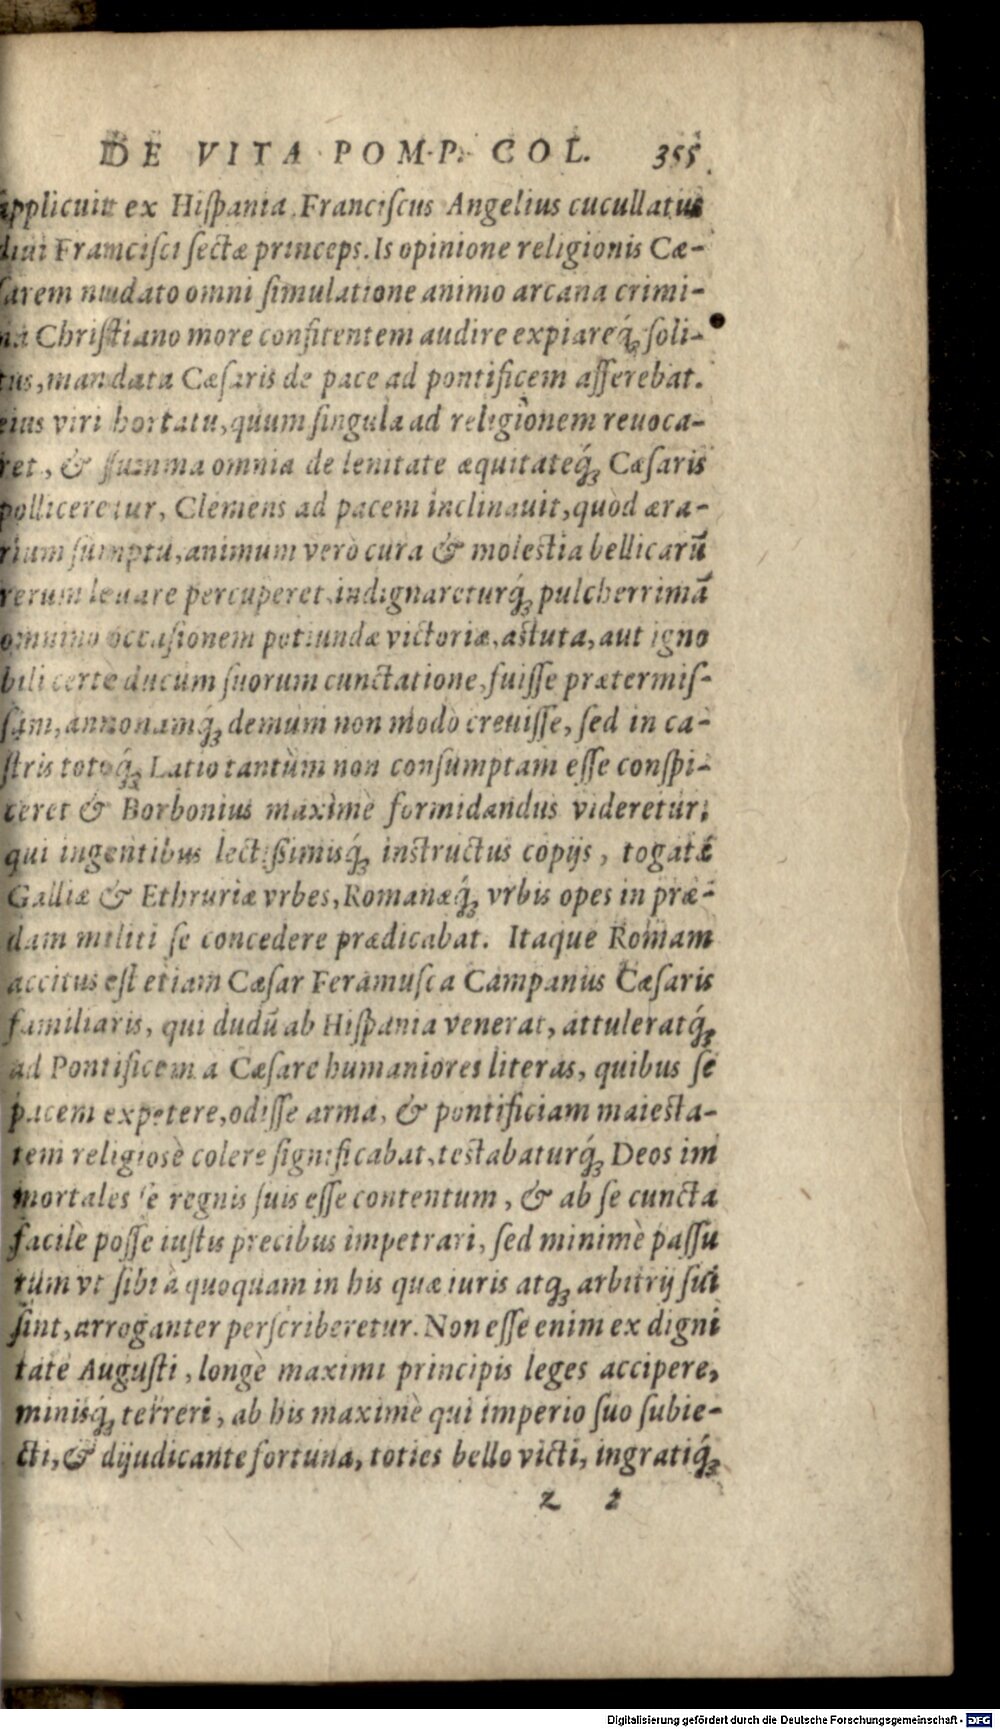 DE VITA POMP. COL. 355
applicuit ex Hiſpania Franciſcus Angelius cucullatus
diui Framciſci ſectæ princeps. Is opinione religionis Cæ-
ſarem nudato omni ſimulatione animo arcana crimi-
na Chriſtiano more confitentem audire expiareq́ꝫ ſoli-
tus, mandata Cæſaris de pace ad pontificem afferebat.
eius viri hortatu, quum ſingula ad religionem reuoca-
ret, & ſumma omnia de lenitate æquitateq́ꝫ Cæſaris
polliceretur, Clemens ad pacem inclinauit, quòd æra-
rium ſumptu, animum verò cura & moleſtia bellicarū
rerum leuare percuperet. indignareturq́ꝫ pulcherrimā
omnino occaſionem potiundæ victoriæ, aſtuta, aut igno
bili certè ducum ſuorum cunctatione, fuiſſe prætermiſ-
ſam, annonamq́ꝫ demum non modò creuiſſe, ſed in ca-
ſtris totoq́ꝫ Latio tantùm non conſumptam eſſe conſpi-
ceret & Borbonius maximè formidandus videretur:
qui ingentibus lectiſſimisq́ꝫ inſtructus copijs, togatæ
Galliæ & Ethruriæ vrbes, Romanæq́ꝫ vrbis opes in præ-
dam militi ſe concedere prædicabat. Itaque Romam
accitus eſt etiam Cæſar Feramuſca Campanus Cæſaris
familiaris, qui dudū ab Hiſpania venerat, attuleratq́ꝫ
ad Pontificem a Cæſare humaniores literas, quibus ſe
pacem expetere, odiſſe arma, & pontificiam maieſta-
tem religiosè colere ſignificabat, teſtabaturq́ꝫ Deos im
mortales ſe regnis ſuis eſſe contentum, & ab ſe cuncta
facilè poſſe iuſtis precibus impetrari, ſed minimè paſſu
rum vt ſibi à quoquam in his quæ iuris atqꝫ arbitrij ſui
ſint, arroganter perſcriberetur. Non eſſe enim ex digni
tate Auguſti, longè maximi principis leges accipere,
minisq́ꝫ terreri, ab his maximè qui imperio ſuo ſubie-
cti, & dijudicante fortuna, toties bello victi, ingratiq́ꝫ
z 2
Digitalisierung gefördert durch die Deutsche Forschungsgemeinschaft - DFG